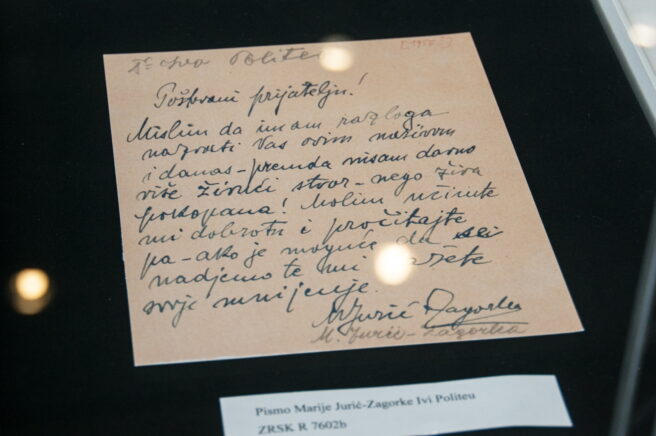 Poštovani prijatelju!
Mislim da imam razloga
nazvati Vas ovim nazivom
i danas - premda nisam davno
više živući stvor - nego živa
pokopana! Molim učinite
mi dobrotu i pročitajte
pa - ako je moguće da se
nadjemo te mi kažete
svoje mnijenje.
MJurić Zagorka
M. Jurić - Zagorka
Pismo Marije Jurić-Zagorke Ivi Politeu
ZRSK R 7602b